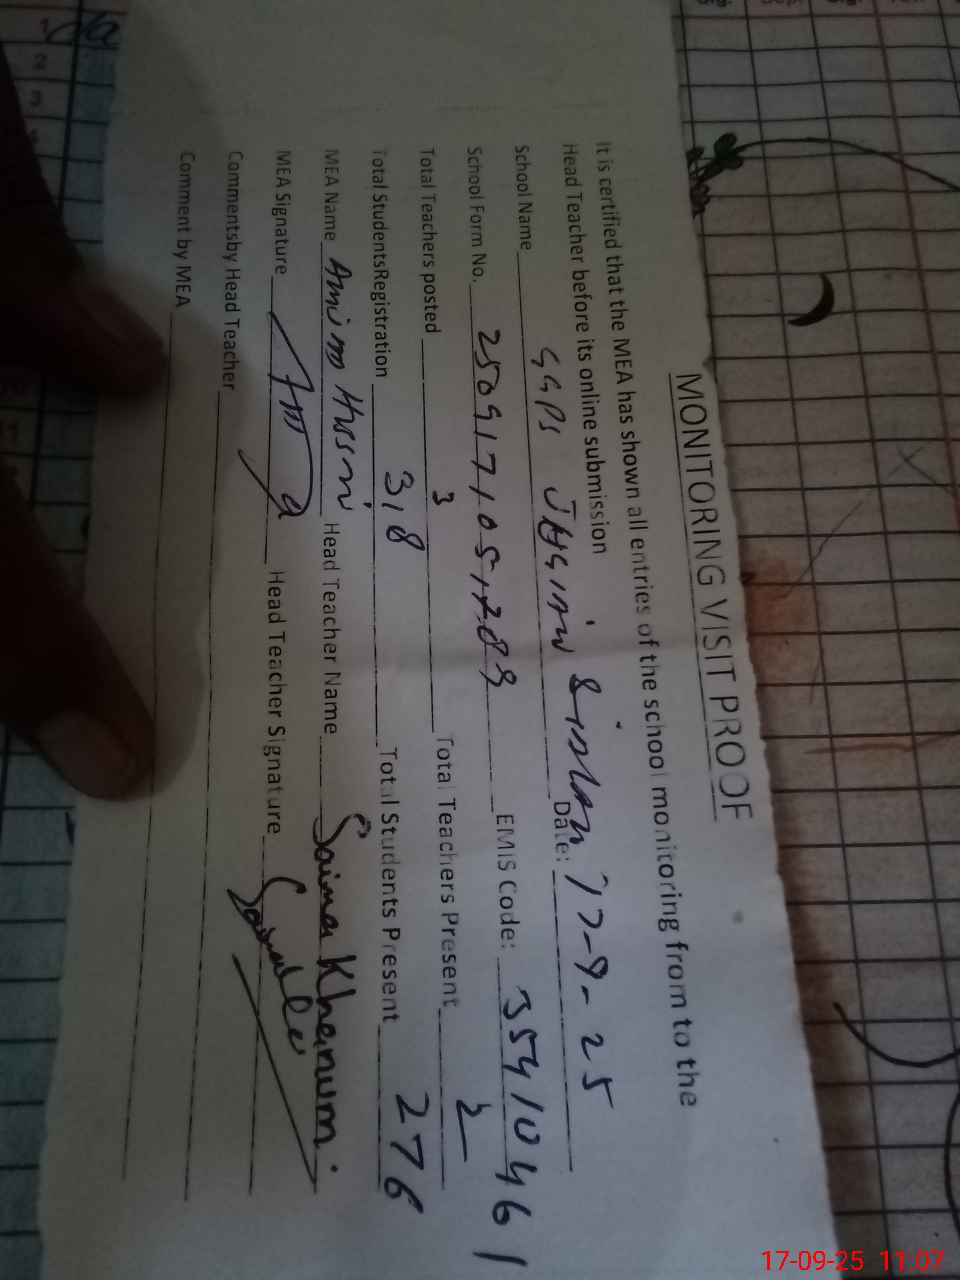 MONITORING VISIT PROOF
It is certified that the MEA has shown all entries of the school monitoring from to the
Head Teacher before its online submission
School Name GGPS Islam Date: 17-9-25
School Form No. EMIS Code: 35410461
Total Teachers posted 3 Total Teachers Present 2
Total StudentsRegistration 318 Total Students Present 276
MEA Name Head Teacher Name Saima Khanum
MEA Signature Head Teacher Signature
Commentsby Head Teacher
Comment by MEA
1
2
3
17-09-25 11:07